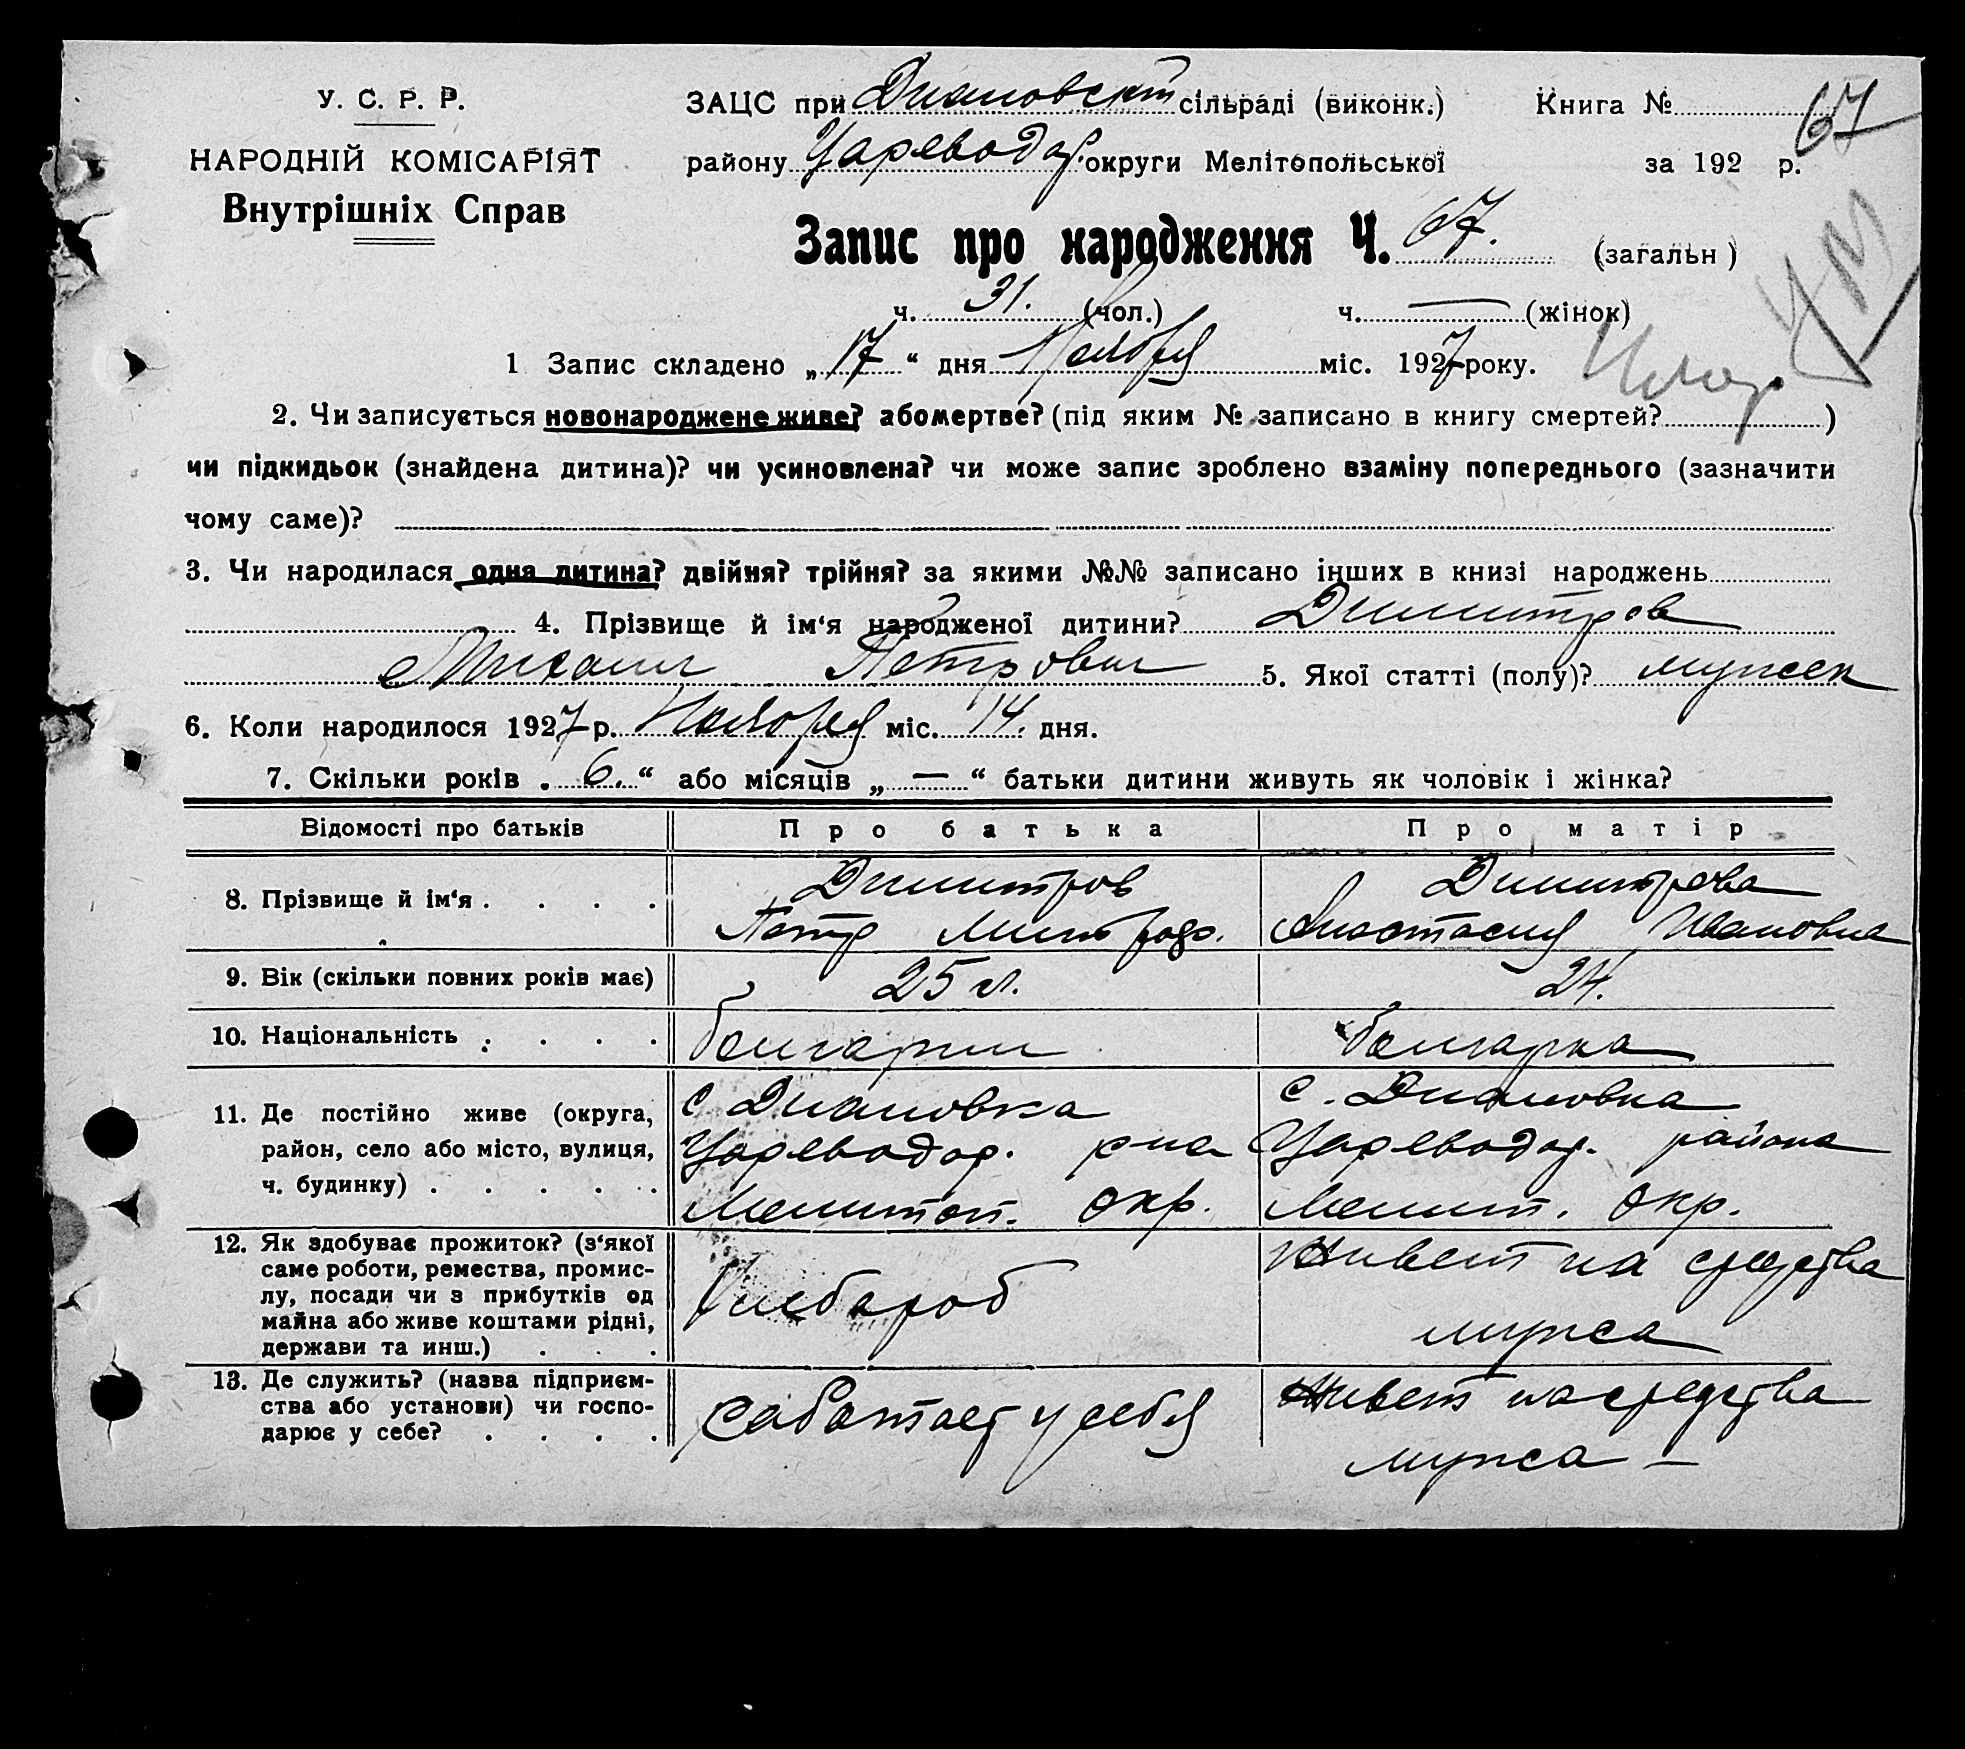 У. С. Р. Р.
НАРОДНІЙ КОМІСАРІЯТ
Внутрішніх Справ
ЗАЦС при Диановскт сільраді (виконк.) Книга №
67
району Цареводар. округи Мелітопольської за 192 р.
Запис про народження Ч. 67. (загальн)
ч. 31. (чол.) ч. — (жінок)
1 Запис складено „ 17 “ дня Ноября міс. 1927 року.
2. Чи записується новонароджене живе? або мертве? (під яким № записано в книгу смертей? )
чи підкидьок (знайдена дитина)? чи усиновлена? чи може запис зроблено взаміну попереднього (зазначити
чому саме)?
3. Чи народилася одна дитина? двійня? трійня? за якими №№ записано інших в книзі народжень
4. Прізвище й ім‘я народженої дитини? Димитров
Михаил Петрович 5. Якої статті (полу)? мужск
6. Коли народилося 1927 р. Ноября міс. 14. дня.
7. Скільки років „ 6. “ або місяців „ — “ батьки дитини живуть як чоловік і жінка?
Відомості про батьків Про батька Про матір
8. Прізвище й ім‘я . . . . Димитров Димитрова
Петр Митрофр. Анастасия Ивановна
9. Вік (скільки повних років має) 25 л. 24.
10. Національність . . . . болгарин болгарка
11. Де постійно живе (округа, с Диановка с. Диановка
район, село або місто, вулиця, Цареводар. р-на Цареводар. района
ч. будинку) . . . . . Мелитоп. окр. Мелит. окр.
12. Як здобуває прожиток? (з‘якої
саме роботи, ремества, промис-
лу, посади чи з прибутків од
майна або живе коштами рідні,
держави та инш.) . . .
Хлебороб
Живет на средства
мужа
13. Де служить? (назва підприєм-
ства або установи) чи госпо-
дарює у себе? . . . .
работает у себя
Живет на средства
мужа —